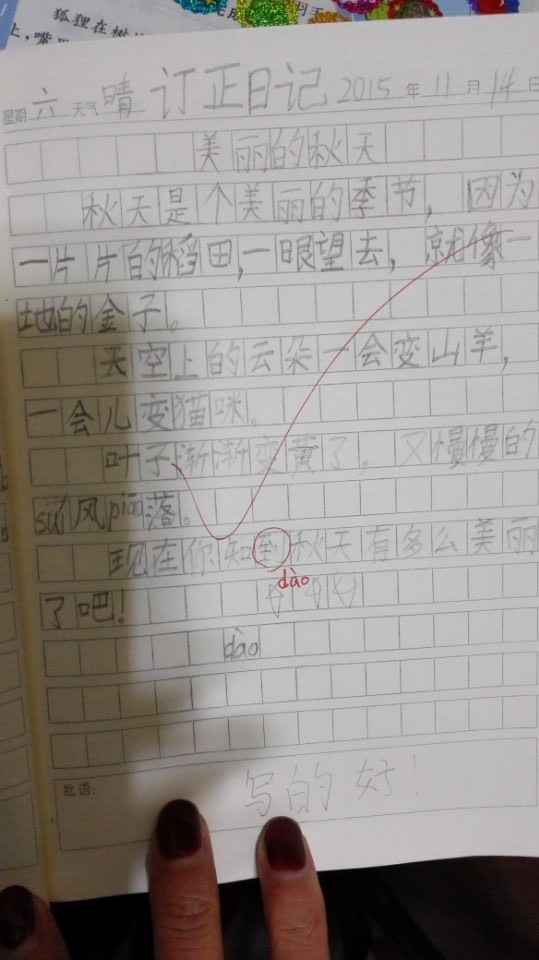 狐狸在树
完成
上，嘴里
星期 六 天气 晴 订正日记 2015 年 11 月 14 日
美丽的秋天
秋天是个美丽的季节，因为
一片片的稻田，一眼望去，就像一
地的金子。
天空上的云朵一会变山羊，
一会儿变猫咪。
叶子渐渐变黄了，又慢慢的
suí风piāo落。
现在你知到秋天有多么美丽
dào
了吧！
dào
批语：
写的好！